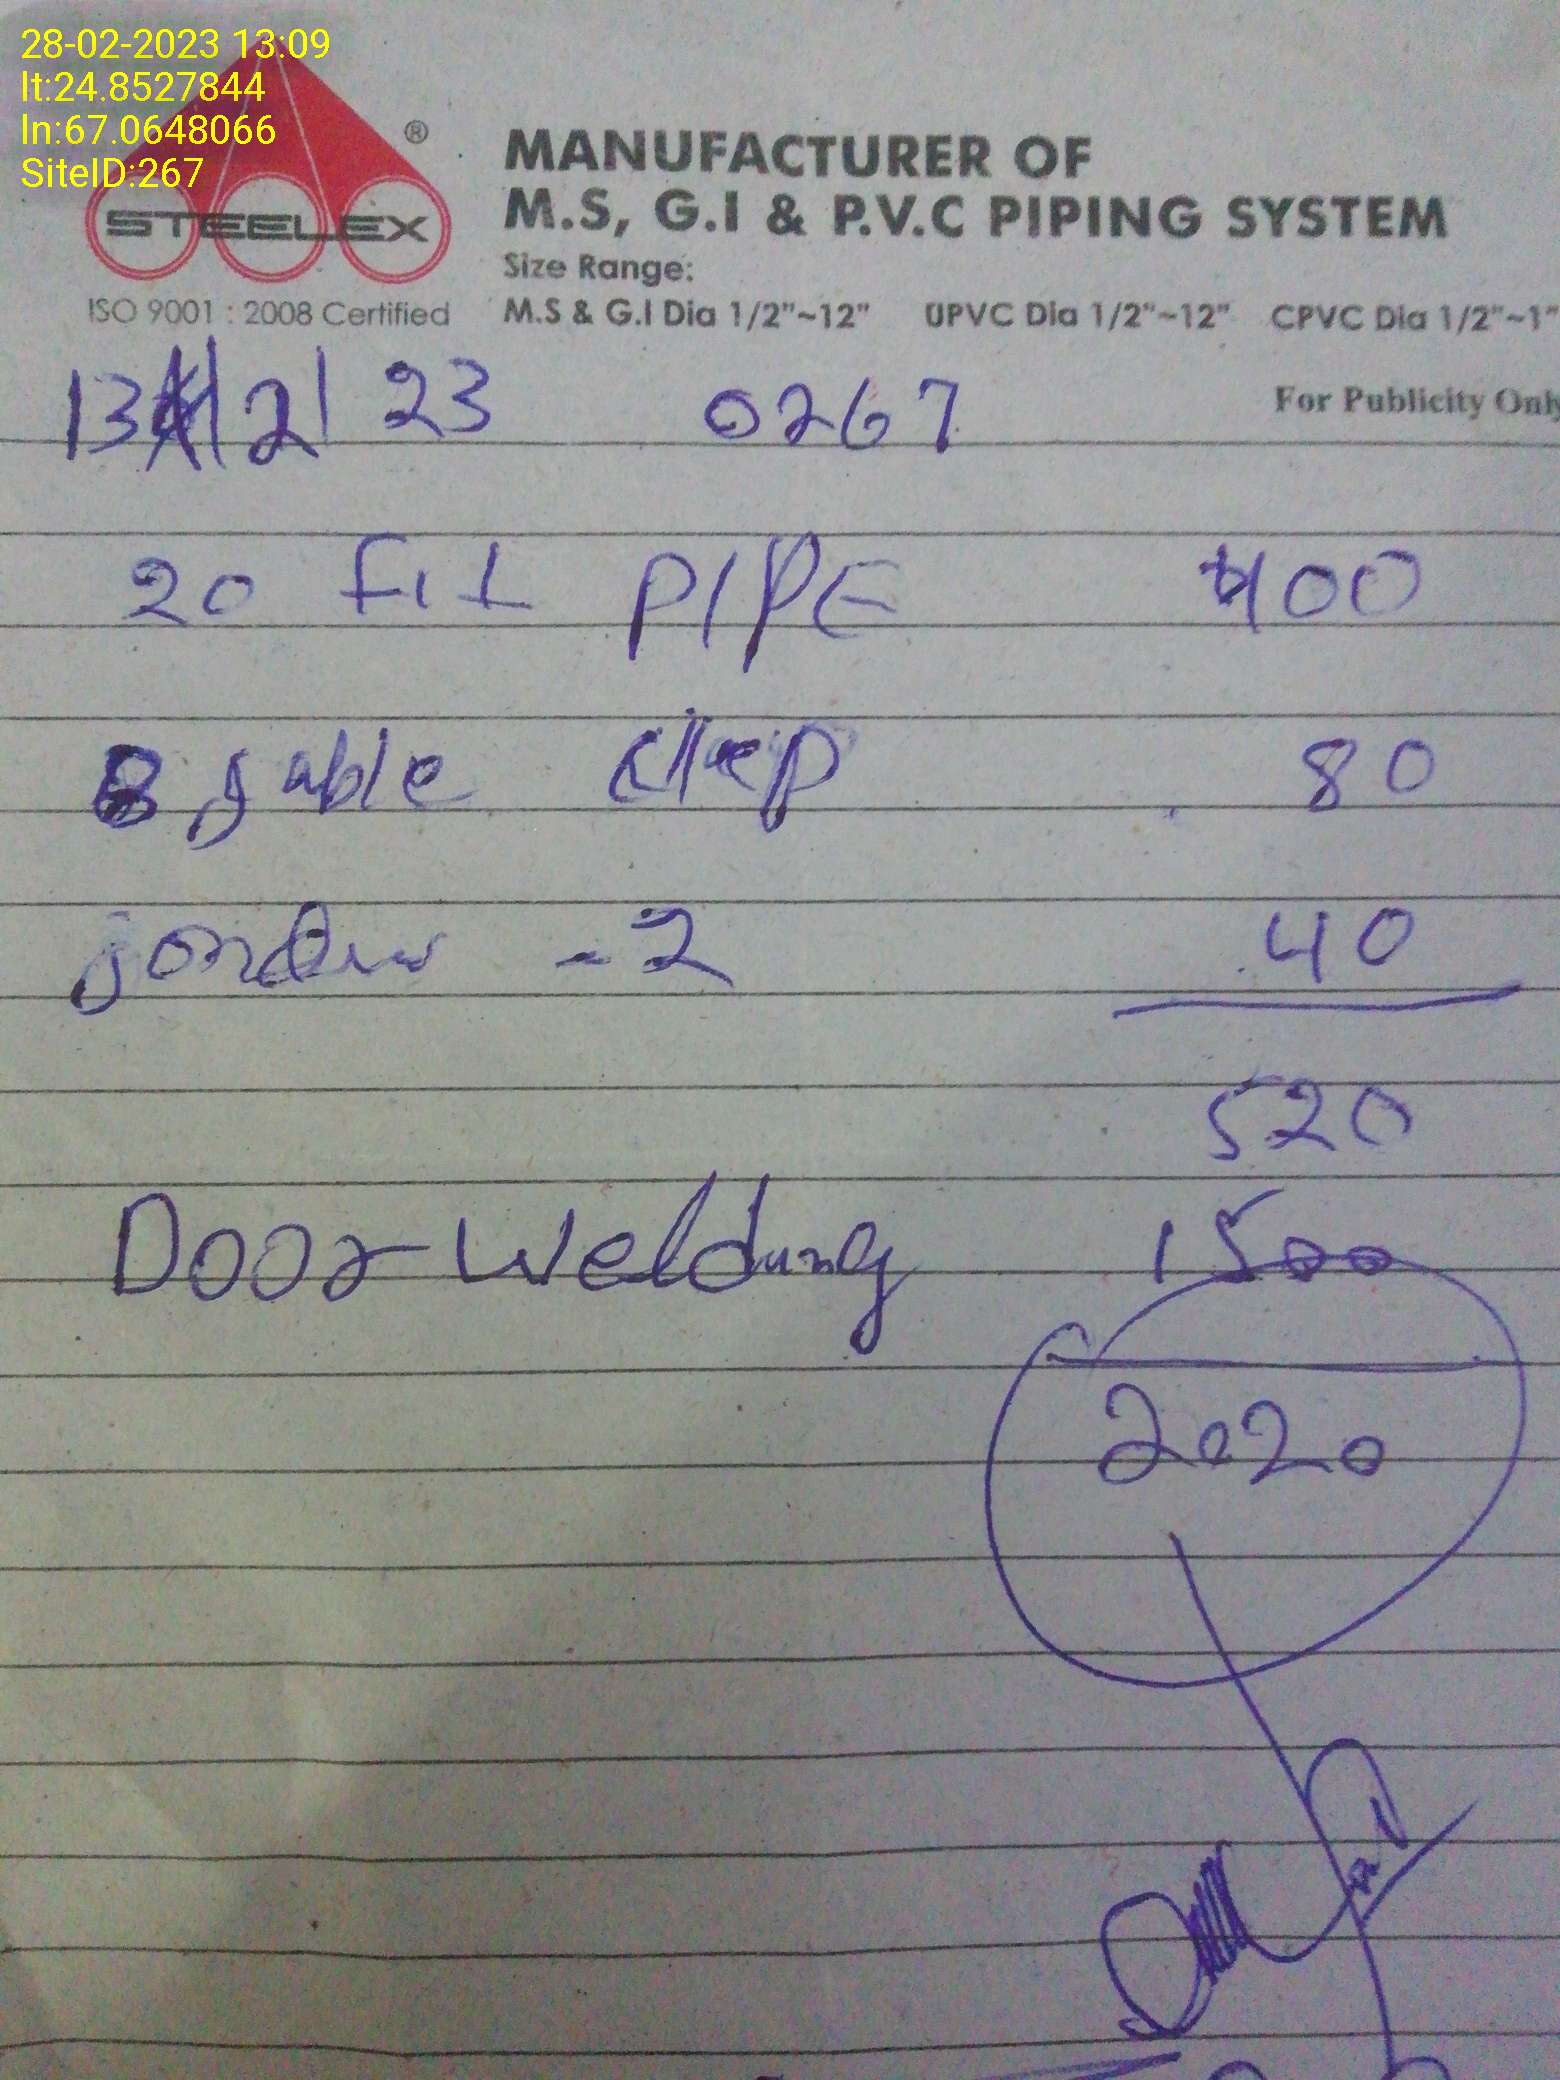 28-02-2023 13:09
lt:24.8527844
ln:67.0648066
SiteID:267
®
STEELEX
ISO 9001 : 2008 Certified
MANUFACTURER OF
M.S, G.I & P.V.C PIPING SYSTEM
Size Range:
M.S & G.I Dia 1/2"~12" UPVC Dia 1/2"~12" CPVC Dia 1/2"~1"
For Publicity Only
13/2/23 0267
20 Fit PIPE 400
8 gable clep 80
-2 40
520
Door Welding 1500
2020